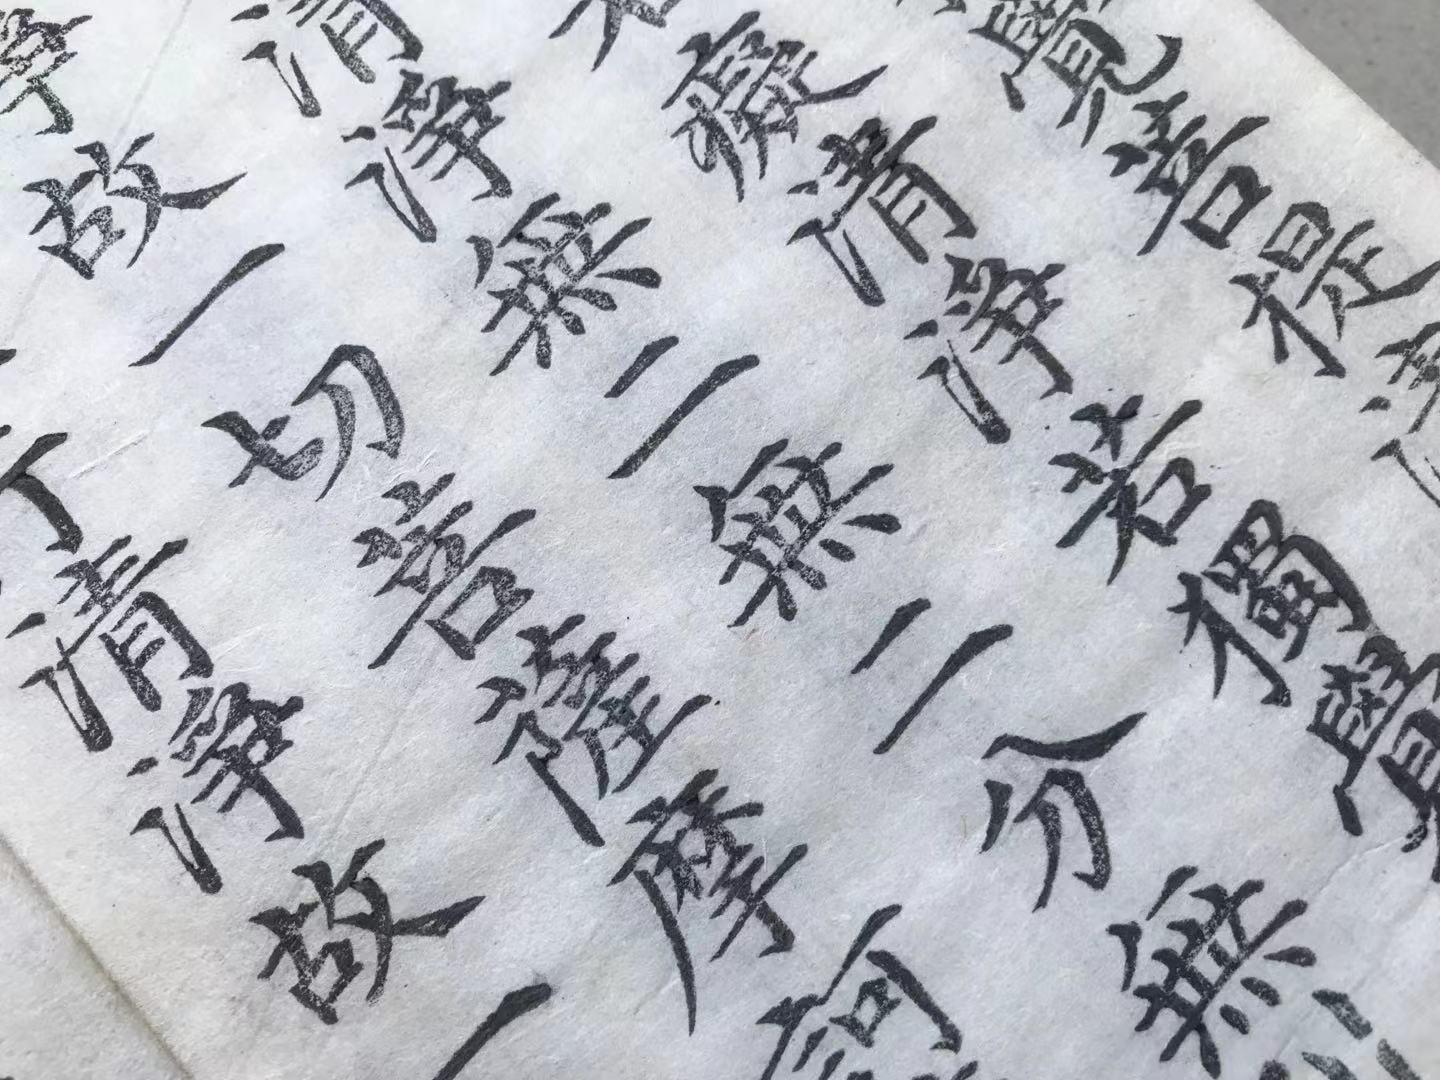 覺菩提
癡清淨若獨覺
清淨無二無二分無
淨故一切菩薩摩訶
清淨故一